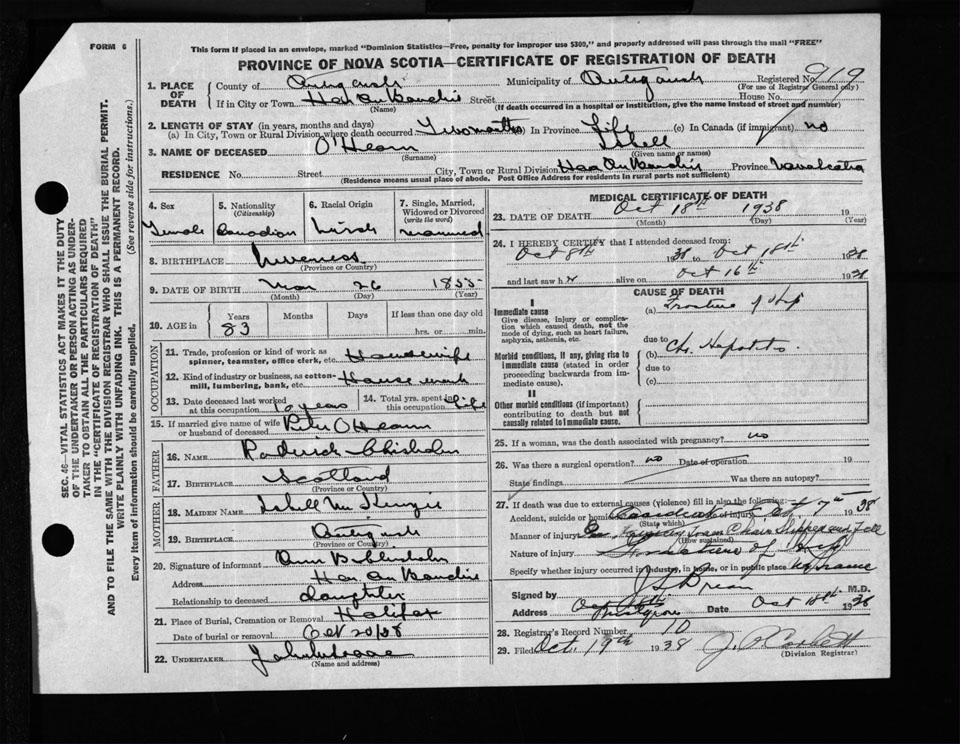 FORM 6
This form if placed in an envelope, marked "Dominion Statistics—Free, penalty for improper use $300," and properly addressed will pass through the mail "FREE"
PROVINCE OF NOVA SCOTIA—CERTIFICATE OF REGISTRATION OF DEATH
1. PLACE OF DEATH
County of Antigonish Municipality of Antigonish Registered No. 919
(For use of Registrar General only)
If in City or Town Street House No.
(Name) (If death occurred in a hospital or institution, give the name instead of street and number)
2. LENGTH OF STAY (in years, months and days)
(a) In City, Town or Rural Division where death occurred Two months (b) In Province Life (c) In Canada (if immigrant) no
3. NAME OF DECEASED O'Hearn Isbell
(Surname) (Given name or names)
RESIDENCE No. Street City, Town or Rural Division Province Nova Scotia
(Residence means usual place of abode. Post Office Address for residents in rural parts not sufficient)
4. Sex
Female
5. Nationality
(Citizenship)
Canadian
6. Racial Origin
Irish
7. Single, Married, Widowed or Divorced
(write the word)
8. BIRTHPLACE Inverness
(Province or Country)
9. DATE OF BIRTH Mar 26 1855
(Month) (Day) (Year)
10. AGE in Years Months Days If less than one day old
83 hrs. or min.
OCCUPATION
11. Trade, profession or kind of work as spinner, teamster, office clerk, etc. Housewife
12. Kind of industry or business, as cotton-mill, lumbering, bank, etc. House work
13. Date deceased last worked at this occupation 10 years
14. Total yrs. spent in this occupation Life
15. If married give name of wife or husband of deceased Peter O'Hearn
FATHER
16. NAME Roderick Chisholm
17. BIRTHPLACE Scotland
(Province or Country)
MOTHER
18. MAIDEN NAME Isbell McKenzie
19. BIRTHPLACE Antigonish
(Province or Country)
20. Signature of informant Ann B
Address
Relationship to deceased daughter
21. Place of Burial, Cremation or Removal Halifax
Date of burial or removal Oct 20/38
22. UNDERTAKER
(Name and address)
MEDICAL CERTIFICATE OF DEATH
23. DATE OF DEATH Oct 18th 1938 19
(Month) (Day) (Year)
24. I HEREBY CERTIFY that I attended deceased from:
Oct 8th 1938 to Oct 18th 1938
and last saw h alive on Oct 16th 1938
CAUSE OF DEATH
I
Immediate cause
Give disease, injury or complication which caused death, not the mode of dying, such as heart failure, asphyxia, asthenia, etc.
(a) Fracture of Hip
due to
Morbid conditions, if any, giving rise to immediate cause (stated in order proceeding backwards from immediate cause).
(b) Ch.
due to
(c)
II
Other morbid conditions (if important) contributing to death but not causally related to immediate cause.
25. If a woman, was the death associated with pregnancy? no
26. Was there a surgical operation? no Date of operation 19
State findings Was there an autopsy?
27. If death was due to external causes (violence) fill in also the following:
Accident, suicide or homicide Accident Date of injury 7th 1938
(State which)
Manner of injury from Chair Slipped and Fell
(How sustained)
Nature of injury Fracture of Hip
Specify whether injury occurred in industry, in home, or in public place
Signed by M.D.
Address Date Oct 18th 1938
28. Registrar's Record Number 10
29. Filed Oct. 19th 1938
(Division Registrar)
SEC. 46—VITAL STATISTICS ACT MAKES IT THE DUTY
OF THE UNDERTAKER OR PERSON ACTING AS UNDER-
TAKER TO OBTAIN ALL THE PARTICULARS REQUIRED
IN THE "CERTIFICATE OF REGISTRATION OF DEATH"
AND TO FILE THE SAME WITH THE DIVISION REGISTRAR WHO SHALL ISSUE THE BURIAL PERMIT.
WRITE PLAINLY WITH UNFADING INK. THIS IS A PERMANENT RECORD.
Every item of information should be carefully supplied. (See reverse side for instructions.)